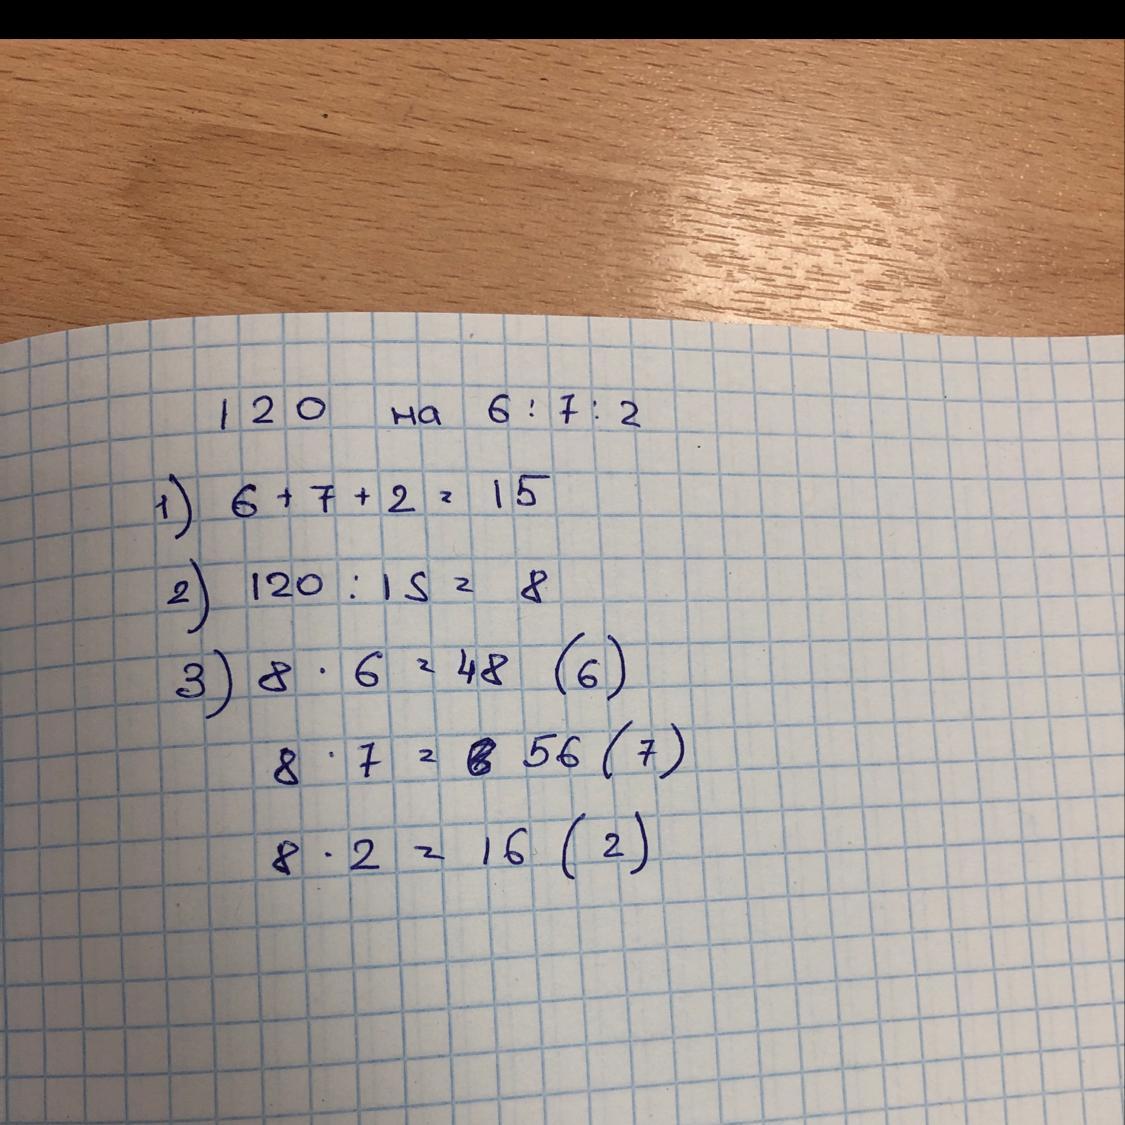 120 на 6:7:2
1) 6+7+2=15
2) 120:15=8
3) 8·6=48 (6)
8·7= 56 (7)
8·2=16 (2)